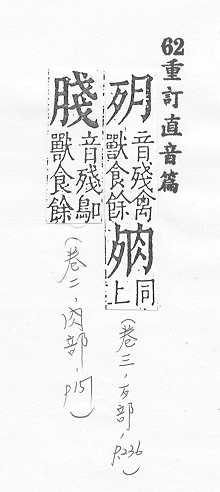 62重訂直音篇
音殘禽
獸食餘
同上
(卷三,歹部,p.236)
音殘
獸食餘
(卷二,肉部,p157)